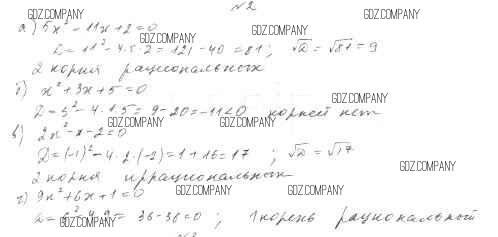 №2
GDZ.COMPANY GDZ.COMPANY
а) 5x² - 11x + 2 = 0 GDZ.COMPANY
GDZ.COMPANY
D = 11² - 4·5·2 = 121 - 40 = 81; √D = √81 = 9
2 корня рациональных
б) x² + 3x + 5 = 0
GDZ.COMPANY
D = 3² - 4·1·5 = 9 - 20 = -11 < 0 корней нет
GDZ.COMPANY GDZ.COMPANY
в) 2x² - x - 2 = 0
D = (-1)² - 4·2·(-2) = 1 + 16 = 17; √D = √17
GDZ.COMPANY
2 корня иррациональных
GDZ.COMPANY GDZ.COMPANY
г) 9x² + 6x + 1 = 0
D = 6² - 4·9 = 36 - 36 = 0; 1 корень рациональный
GDZ.COMPANY